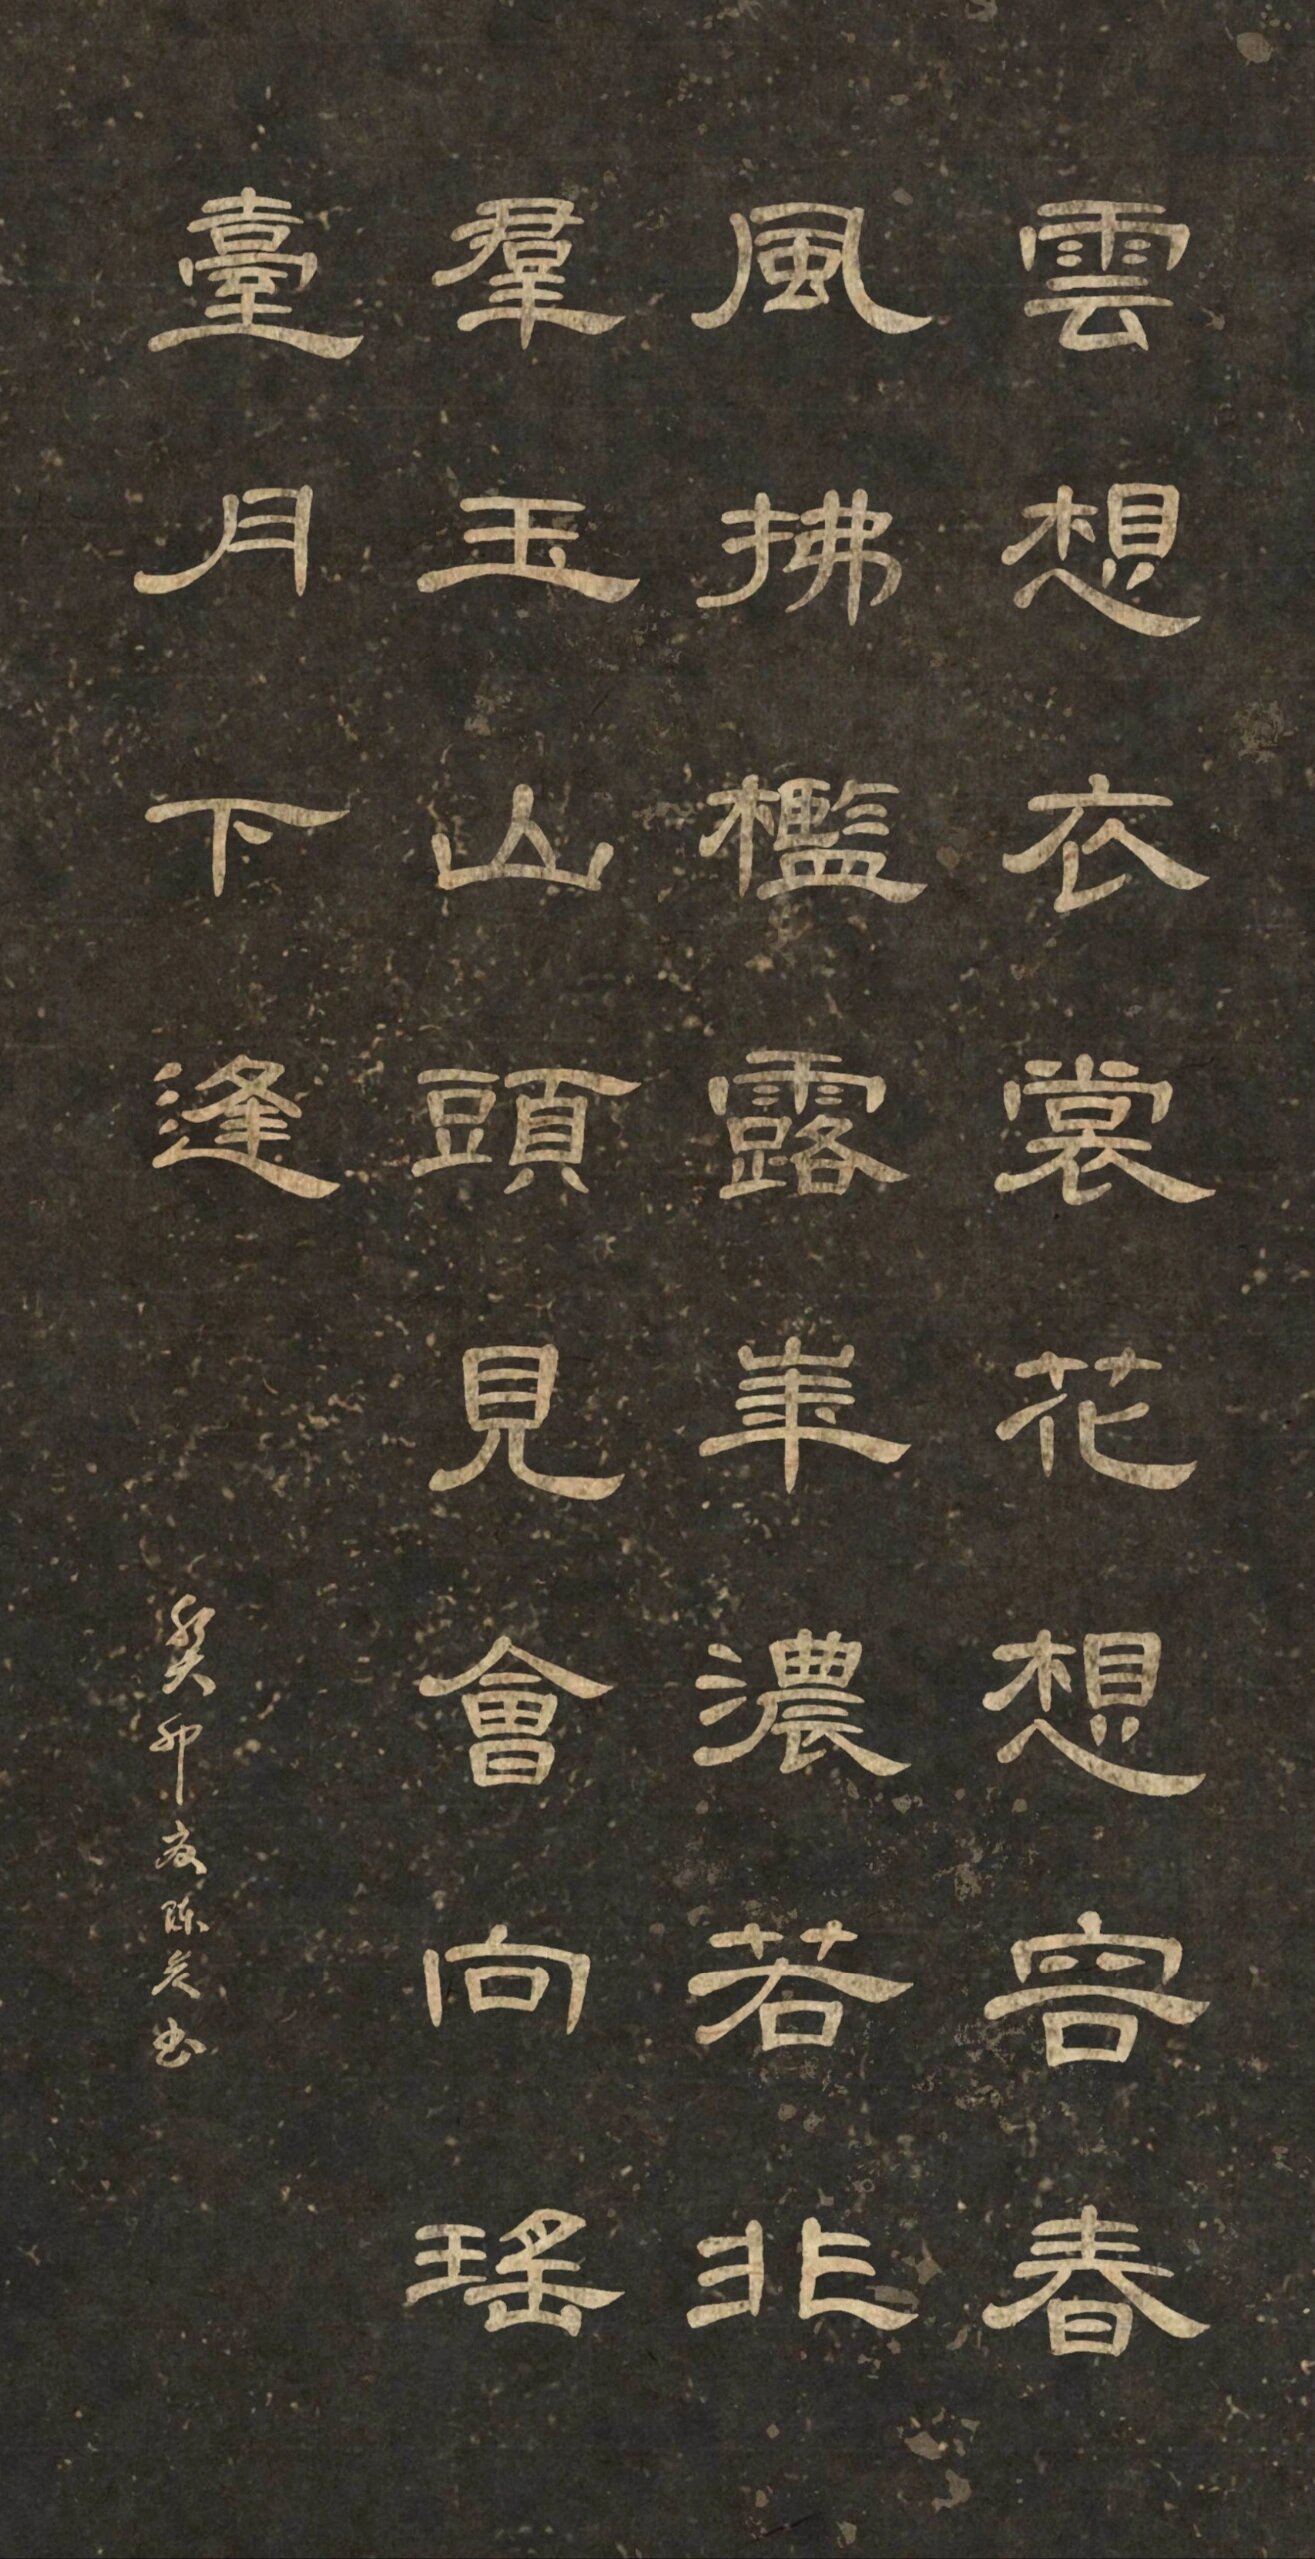 雲想衣裳花想容春
風拂檻露華濃若非
羣玉山頭見會向瑤
臺月下逢
癸卯夏陈炎书